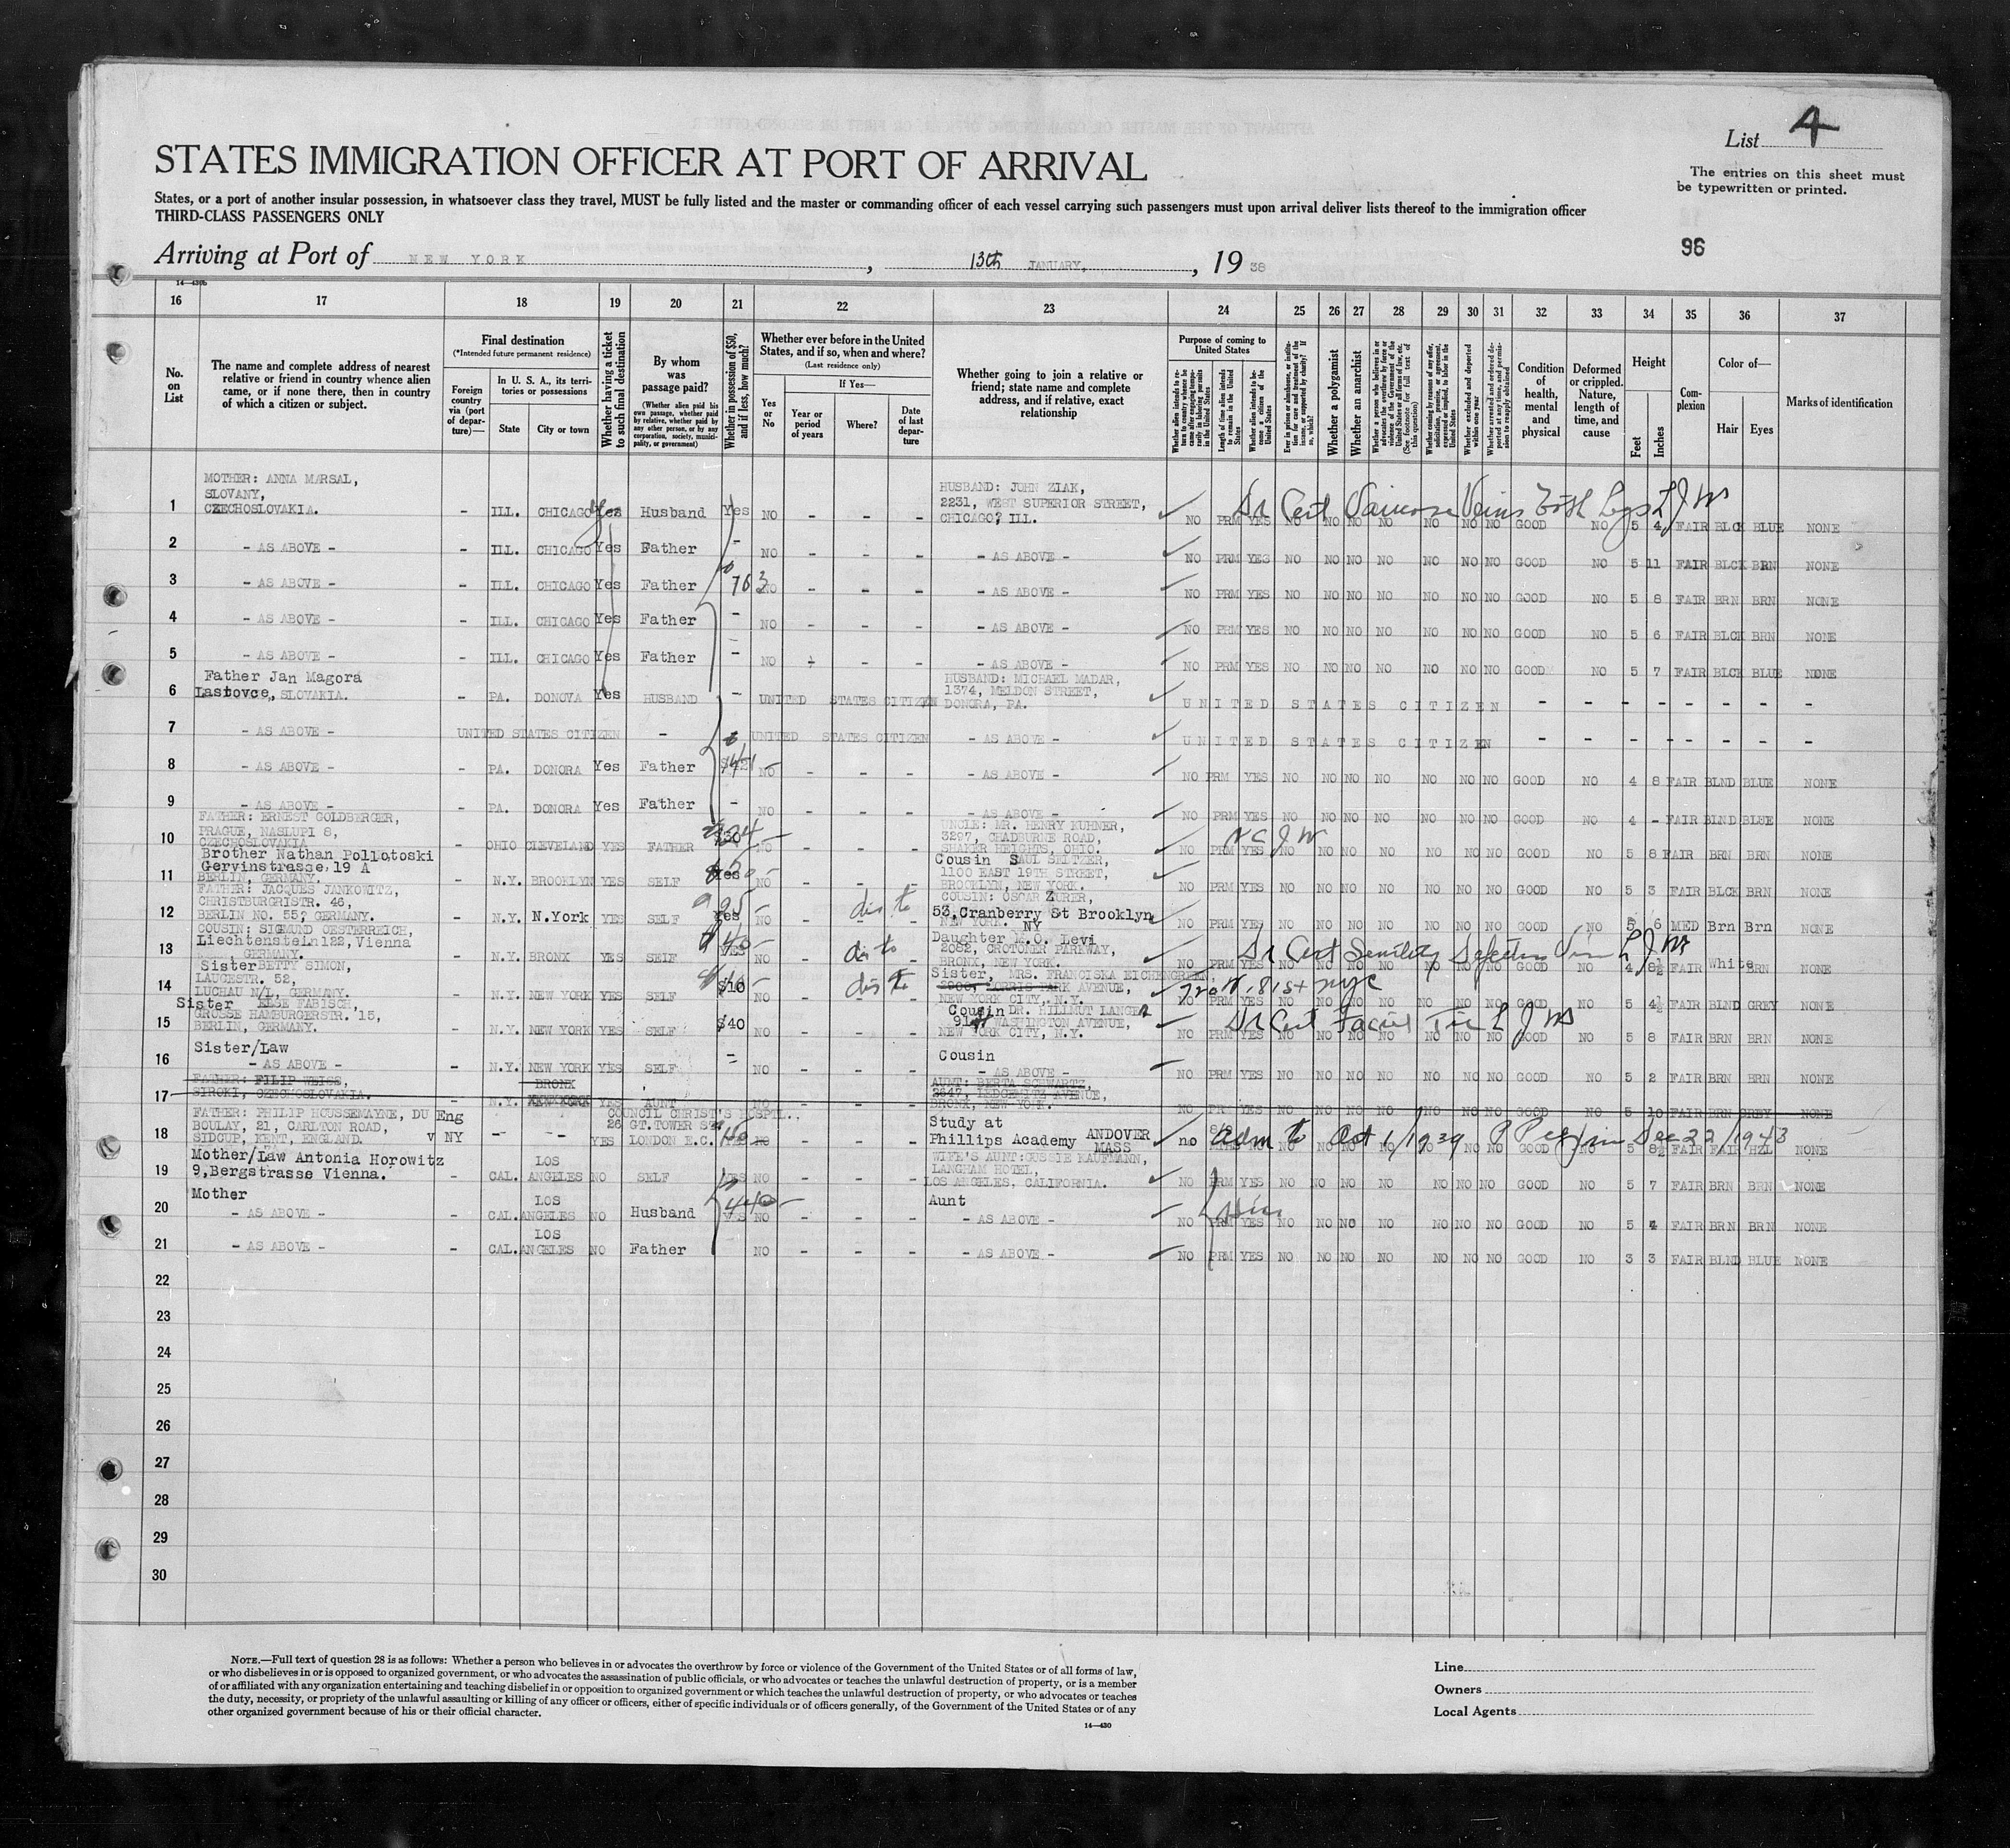 List 4
STATES IMMIGRATION OFFICER AT PORT OF ARRIVAL
The entries on this sheet must
be typewritten or printed.
States, or a port of another insular possession, in whatsoever class they travel, MUST be fully listed and the master or commanding officer of each vessel carrying such passengers must upon arrival deliver lists thereof to the immigration officer
THIRD-CLASS PASSENGERS ONLY
96
Arriving at Port of NEW YORK, 13th JANUARY, 1938
16 17 18 19 20 21 22 23 24 25 26 27 28 29 30 31 32 33 34 35 36 37
No. on List
The name and complete address of nearest relative or friend in country whence alien came, or if none there, then in country of which a citizen or subject.
Final destination
(*Intended future permanent residence)
Foreign country via (port of departure)—
In U. S. A., its territories or possessions
State
City or town
Whether having a ticket to such final destination
By whom was passage paid?
(Whether alien paid his own passage, whether paid by relative, whether paid by any other person, or by any corporation, society, municipality, or government)
Whether in possession of $50, and if less, how much?
Whether ever before in the United States, and if so, when and where?
(Last residence only)
Yes or No
If Yes—
Year or period of years
Where?
Date of last departure
Whether going to join a relative or friend; state name and complete address, and if relative, exact relationship
Purpose of coming to United States
Whether a polygamist
Whether an anarchist
Condition of health, mental and physical
Deformed or crippled. Nature, length of time, and cause
Height
Feet
Inches
Complexion
Color of—
Hair
Eyes
Marks of identification
1 MOTHER: ANNA MARSAL, SLOVANY, CZECHOSLOVAKIA. - ILL. CHICAGO Yes Husband Yes NO - - - HUSBAND: JOHN ZIAK, 2231, WEST SUPERIOR STREET, CHICAGO, ILL. NO PRM YES NO NO NO NO NO NO NO GOOD NO 5 4 FAIR BLCK BLUE NONE
Dr Cert Varicose Veins Both Legs L J M
2 - AS ABOVE - - ILL. CHICAGO Yes Father - NO - - - - AS ABOVE - NO PRM YES NO NO NO NO NO NO NO GOOD NO 5 11 FAIR BLCK BRN NONE
3 - AS ABOVE - - ILL. CHICAGO Yes Father 763 NO - - - - AS ABOVE - NO PRM YES NO NO NO NO NO NO NO GOOD NO 5 8 FAIR BRN BRN NONE
4 - AS ABOVE - - ILL. CHICAGO Yes Father - NO - - - - AS ABOVE - NO PRM YES NO NO NO NO NO NO NO GOOD NO 5 6 FAIR BLCK BRN NONE
5 - AS ABOVE - - ILL. CHICAGO Yes Father - NO - - - - AS ABOVE - NO PRM YES NO NO NO NO NO NO NO GOOD NO 5 7 FAIR BLCK BLUE NONE
6 Father Jan Magora Lastovce, SLOVAKIA. - PA. DONOVA Yes HUSBAND - UNITED STATES CITIZEN HUSBAND: MICHAEL MADAR, 1374, MELDON STREET, DONORA, PA. UNITED STATES CITIZEN - - - - - - - -
7 - AS ABOVE - UNITED STATES CITIZEN - UNITED STATES CITIZEN - AS ABOVE - UNITED STATES CITIZEN - - - - - - - -
8 - AS ABOVE - - PA. DONORA Yes Father NO - - - - AS ABOVE - NO PRM YES NO NO NO NO NO NO NO GOOD NO 4 8 FAIR BLND BLUE NONE
9 - AS ABOVE - - PA. DONORA Yes Father - NO - - - - AS ABOVE - NO PRM YES NO NO NO NO NO NO NO GOOD NO 4 - FAIR BLND BLUE NONE
10 FATHER: ERNEST GOLDBERGER, PRAGUE, NASLUPI 8, CZECHOSLOVAKIA - OHIO CLEVELAND YES FATHER NO - - - UNCLE: MR. HENRY KUHNER, 3297, CHADBURNE ROAD, SHAKER HEIGHTS, OHIO. NO PRM YES NO NO NO NO NO NO NO GOOD NO 5 8 FAIR BRN BRN NONE
11 Brother Nathan Pollotoski Gervinstrasse, 19 A BERLIN, GERMANY. - N.Y. BROOKLYN YES SELF Yes NO - - - Cousin SAUL SELTZER, 1100 EAST 19TH STREET, BROOKLYN, NEW YORK. NO PRM YES NO NO NO NO NO NO NO GOOD NO 5 3 FAIR BLCK BRN NONE
12 FATHER: JACQUES JANKOWITZ, CHRISTBURGRISTR. 46, BERLIN NO. 55, GERMANY. - N.Y. N.York YES SELF Yes NO - dis to - COUSIN: OSCAR ZURER, 53, Cranberry St Brooklyn NEW YORK. NY NO PRM YES NO NO NO NO NO NO NO GOOD NO 5 6 MED Brn Brn NONE
13 COUSIN: SIGMUND OESTERREICH, Liechtenstein 122, Vienna, GERMANY. - N.Y. BRONX YES SELF YES 40 NO - dis to - Daughter M.O. Levi 2082, CROTONER PARKWAY, BRONX, NEW YORK. NO PRM YES NO NO NO NO NO NO NO GOOD NO 4 8½ FAIR White BRN NONE
Dr Cert Senility Defective Vision L J M
14 Sister BETTY SIMON, LAUGESTR. 52, LUCHAU N/L, GERMANY. - N.Y. NEW YORK YES SELF $10 NO - dis to - Sister, MRS. FRANCISKA EICHENGREEN, 2000, MORRIS PARK AVENUE, NEW YORK CITY, N.Y. NO PRM YES NO NO NO NO NO NO NO GOOD NO 5 4½ FAIR BLND GREY NONE
15 Sister ELSE FABISCH, GROSSE HAMBURGERSTR. 15, BERLIN, GERMANY. - N.Y. NEW YORK YES SELF $40 NO - - - Cousin DR. HILLMUT LANGER WASHINGTON AVENUE, NEW YORK CITY, N.Y. NO PRM YES NO NO NO NO NO NO NO GOOD NO 5 8 FAIR BRN BRN NONE
Dr Cert Facial Tic L J M
16 Sister/Law - AS ABOVE - - N.Y. NEW YORK YES SELF - NO - - - Cousin - AS ABOVE - NO PRM YES NO NO NO NO NO NO NO GOOD NO 5 2 FAIR BRN BRN NONE
17 FATHER: FILIP WEISS, SIROKI, CZECHOSLOVAKIA. - N.Y. BRONX YES AUNT NO AUNT: BERTA SCHWARTZ, HODGEWISE AVENUE, BRONX, NEW YORK. NO PRM YES NO NO NO NO NO NO NO GOOD NO 5 10 FAIR BRN GREY NONE
18 FATHER: PHILIP HOUSSEMAYNE, DU BOULAY, 21, CARLTON ROAD, SIDCUP, KENT, ENGLAND. Eng v NY - - YES COUNCIL CHRIST'S HOSPIL.. 26 GT. TOWER ST. LONDON E.C. YES NO Study at Phillips Academy ANDOVER MASS no adm to Oct 1/1939 Dec 22/1943 GOOD NO 5 8½ FAIR FAIR HZL NONE
19 Mother/Law Antonia Horowitz 9, Bergstrasse Vienna. - CAL. LOS ANGELES NO SELF YES NO - - - WIFE'S AUNT: GUSSIE KAUFMANN, LANGHAM HOTEL, LOS ANGELES, CALIFORNIA. NO PRM YES NO NO NO NO NO NO NO GOOD NO 5 7 FAIR BRN BRN NONE
20 Mother - AS ABOVE - - CAL. LOS ANGELES NO Husband YES NO - - - Aunt - AS ABOVE - NO PRM YES NO NO NO NO NO NO NO GOOD NO 5 4 FAIR BRN BRN NONE
21 - AS ABOVE - - CAL. LOS ANGELES NO Father NO - - - - AS ABOVE - NO PRM YES NO NO NO NO NO NO NO GOOD NO 3 3 FAIR BLND BLUE NONE
22
23
24
25
26
27
28
29
30
NOTE.—Full text of question 28 is as follows: Whether a person who believes in or advocates the overthrow by force or violence of the Government of the United States or of all forms of law,
or who disbelieves in or is opposed to organized government, or who advocates the assassination of public officials, or who advocates or teaches the unlawful destruction of property, or is a member
of or affiliated with any organization entertaining and teaching disbelief in or opposition to organized government or which teaches the unlawful destruction of property, or who advocates or teaches
the duty, necessity, or propriety of the unlawful assaulting or killing of any officer or officers, either of specific individuals or of officers generally, of the Government of the United States or of any
other organized government because of his or their official character.
14—430
Line
Owners
Local Agents